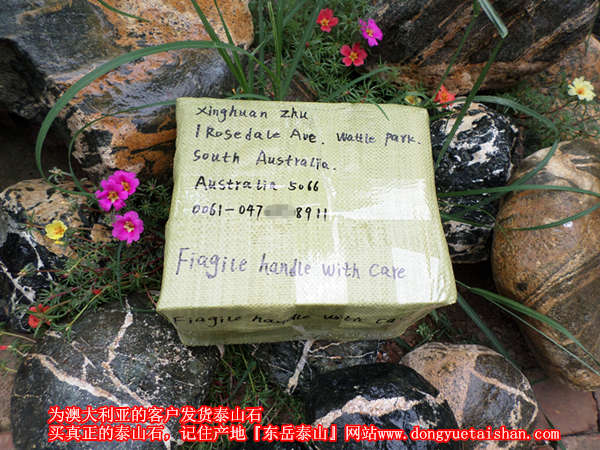 xinghuan zhu
1 Rosedale Ave. Wattle park.
South Australia.
Australia 5066
0061-047 8911
Fiagile handle with care
Fiagile handle with ca
为澳大利亚的客户发货泰山石
买真正的泰山石。记住产地『东岳泰山』网站www.dongyuetaishan.com